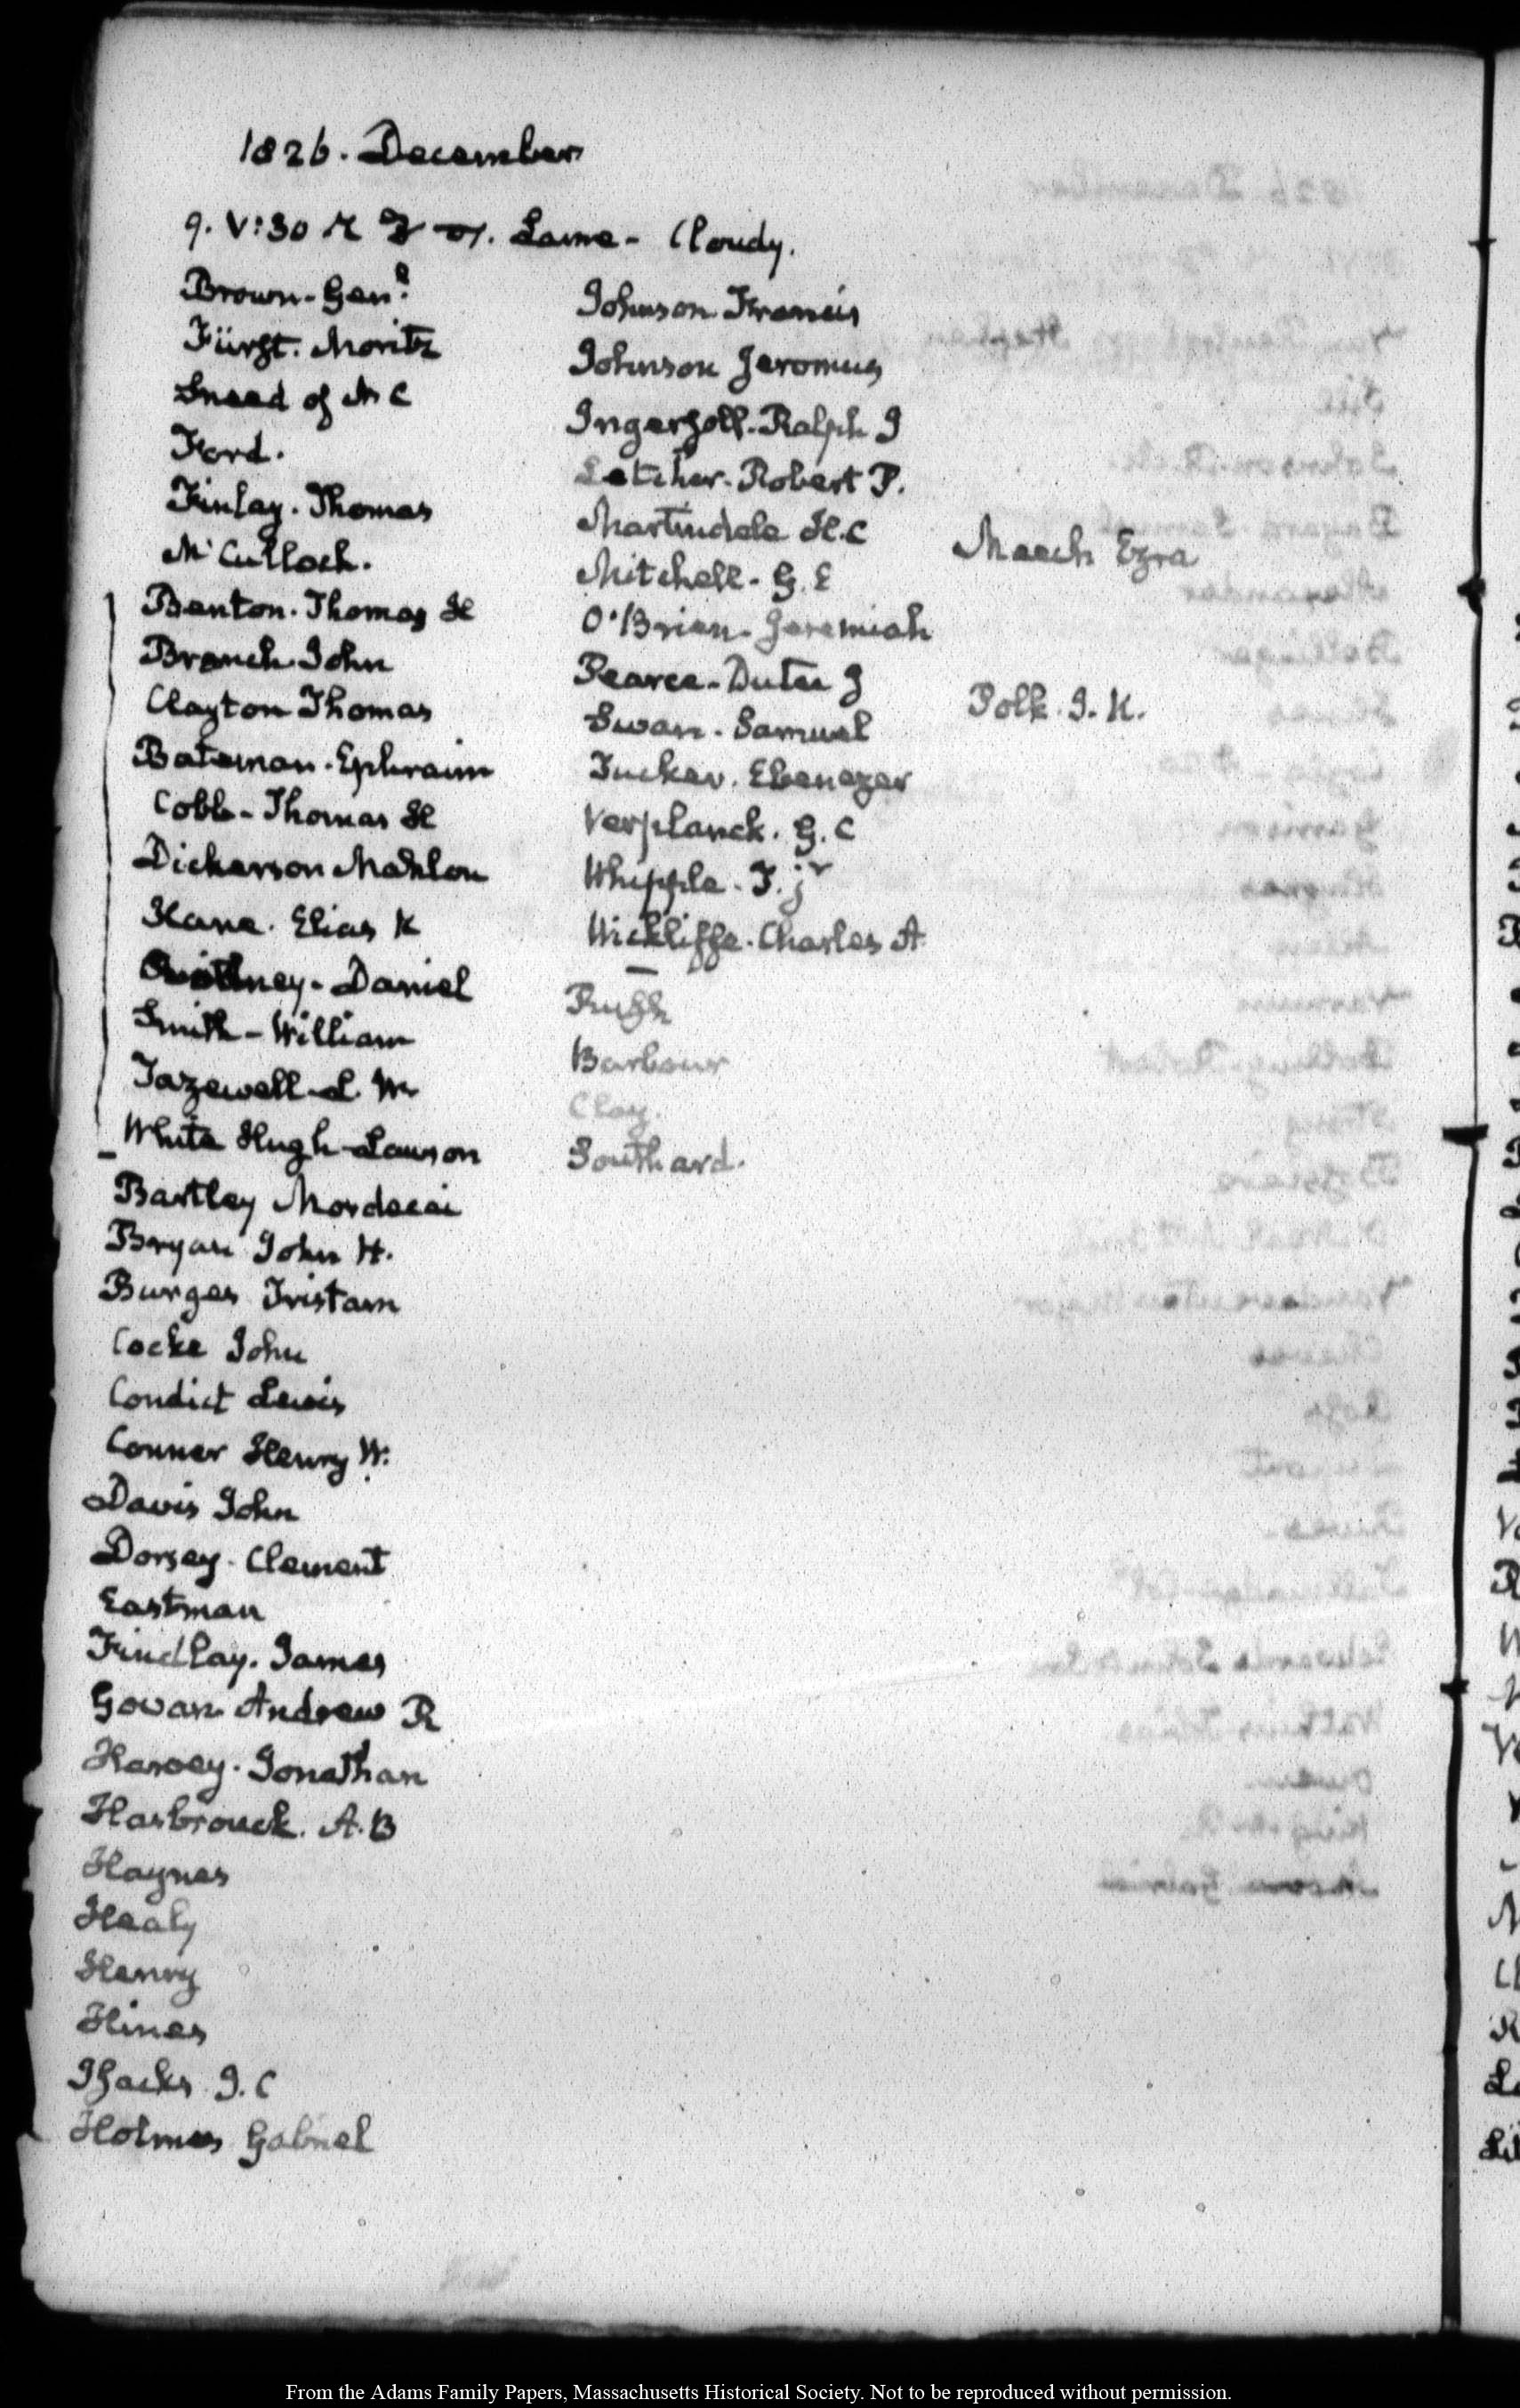 1826. December
9. V:30 Lame - Cloudy.
Brown - Genl.
Fürst. Moritz
Sneed of N C
Ford.
Finlay. Thomas
McCulloch.
Benton. Thomas H
Branch. John
Clayton Thomas
Bateman. Ephraim
Cobb - Thomas H
Dickerson Mahlon
Kane. Elias K
Daniel
Smith - William
Tazewell - L. W.
White Hugh Lawson
Bartley Mordecai
Bryan John H.
Burges Tristam
Cocke John
Condict Lewis
Conner Henry W.
Davis John
Dorsey. Clement
Eastman
Findlay. James
Govan Andrew R
Harvey. Jonathan
Hasbrouck. A. B
Haynes
Healy
Henry
Hines
Isacks J. C
Holmes Gabriel
Johnson Francis
Johnson Jeromus
Ingersoll. Ralph I
Letcher. Robert P.
Martindale H. C
Mitchell - G. E
O'Brien - Jeremiah
Pearce - Dutee J
Swan. Samuel
Tucker. Ebenezer
Verplanck. G. C
Whipple. T. jr
Wickliffe. Charles A
Rush
Barbour
Clay.
Southard.
Meech Ezra
Polk. J. K.
From the Adams Family Papers, Massachusetts Historical Society. Not to be reproduced without permission.